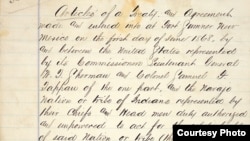 Articles of a Treaty and Agreement
made and entered into at Fort Sumner New
Mexico on the first day of June 1868, by
and between the United States represented
by its Commissioners Lieutenant General
W. T. Sherman and Colonel Samuel F.
Tappan of the one part, and the Navajo
Nation or tribe of Indians represented by
their Chiefs and Head men duly authorized
and empowered to act for the
of said Nation or tribe
Courtesy Photo